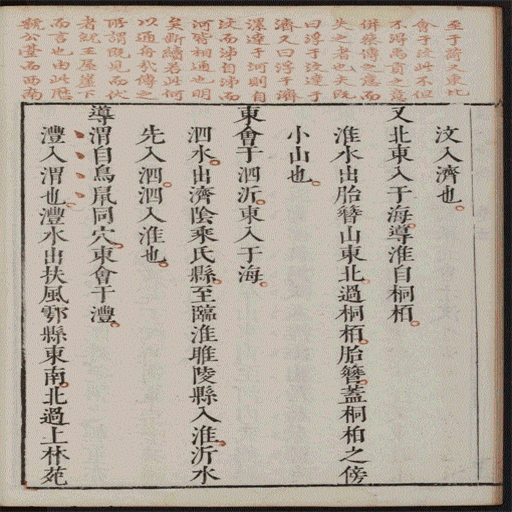 至于荷又東北
會于汶此不但
不得禹貢之意
併蔡傳之意而
失之者也夫既
曰浮于汶達于
濟又曰浮于濟
漯達于河則自
汶而泲自泲而
河皆相通也明
矣新繡若此何
以通舟哉傳之
所謂既見而伏
者就王屋崖下
而言也由此歷
虢公臺西西南
汶入濟也
又北東入于海導淮自桐柏
淮水出胎簪山東北過桐柏胎簪蓋桐柏之傍
小山也
東會于泗沂東入于海
泗水出濟陰乘氏縣至臨淮睢陵縣入淮沂水
先入泗泗入淮也
導渭自鳥鼠同穴東會于灃
灃入渭也灃水出扶風鄠縣東南北過上林苑